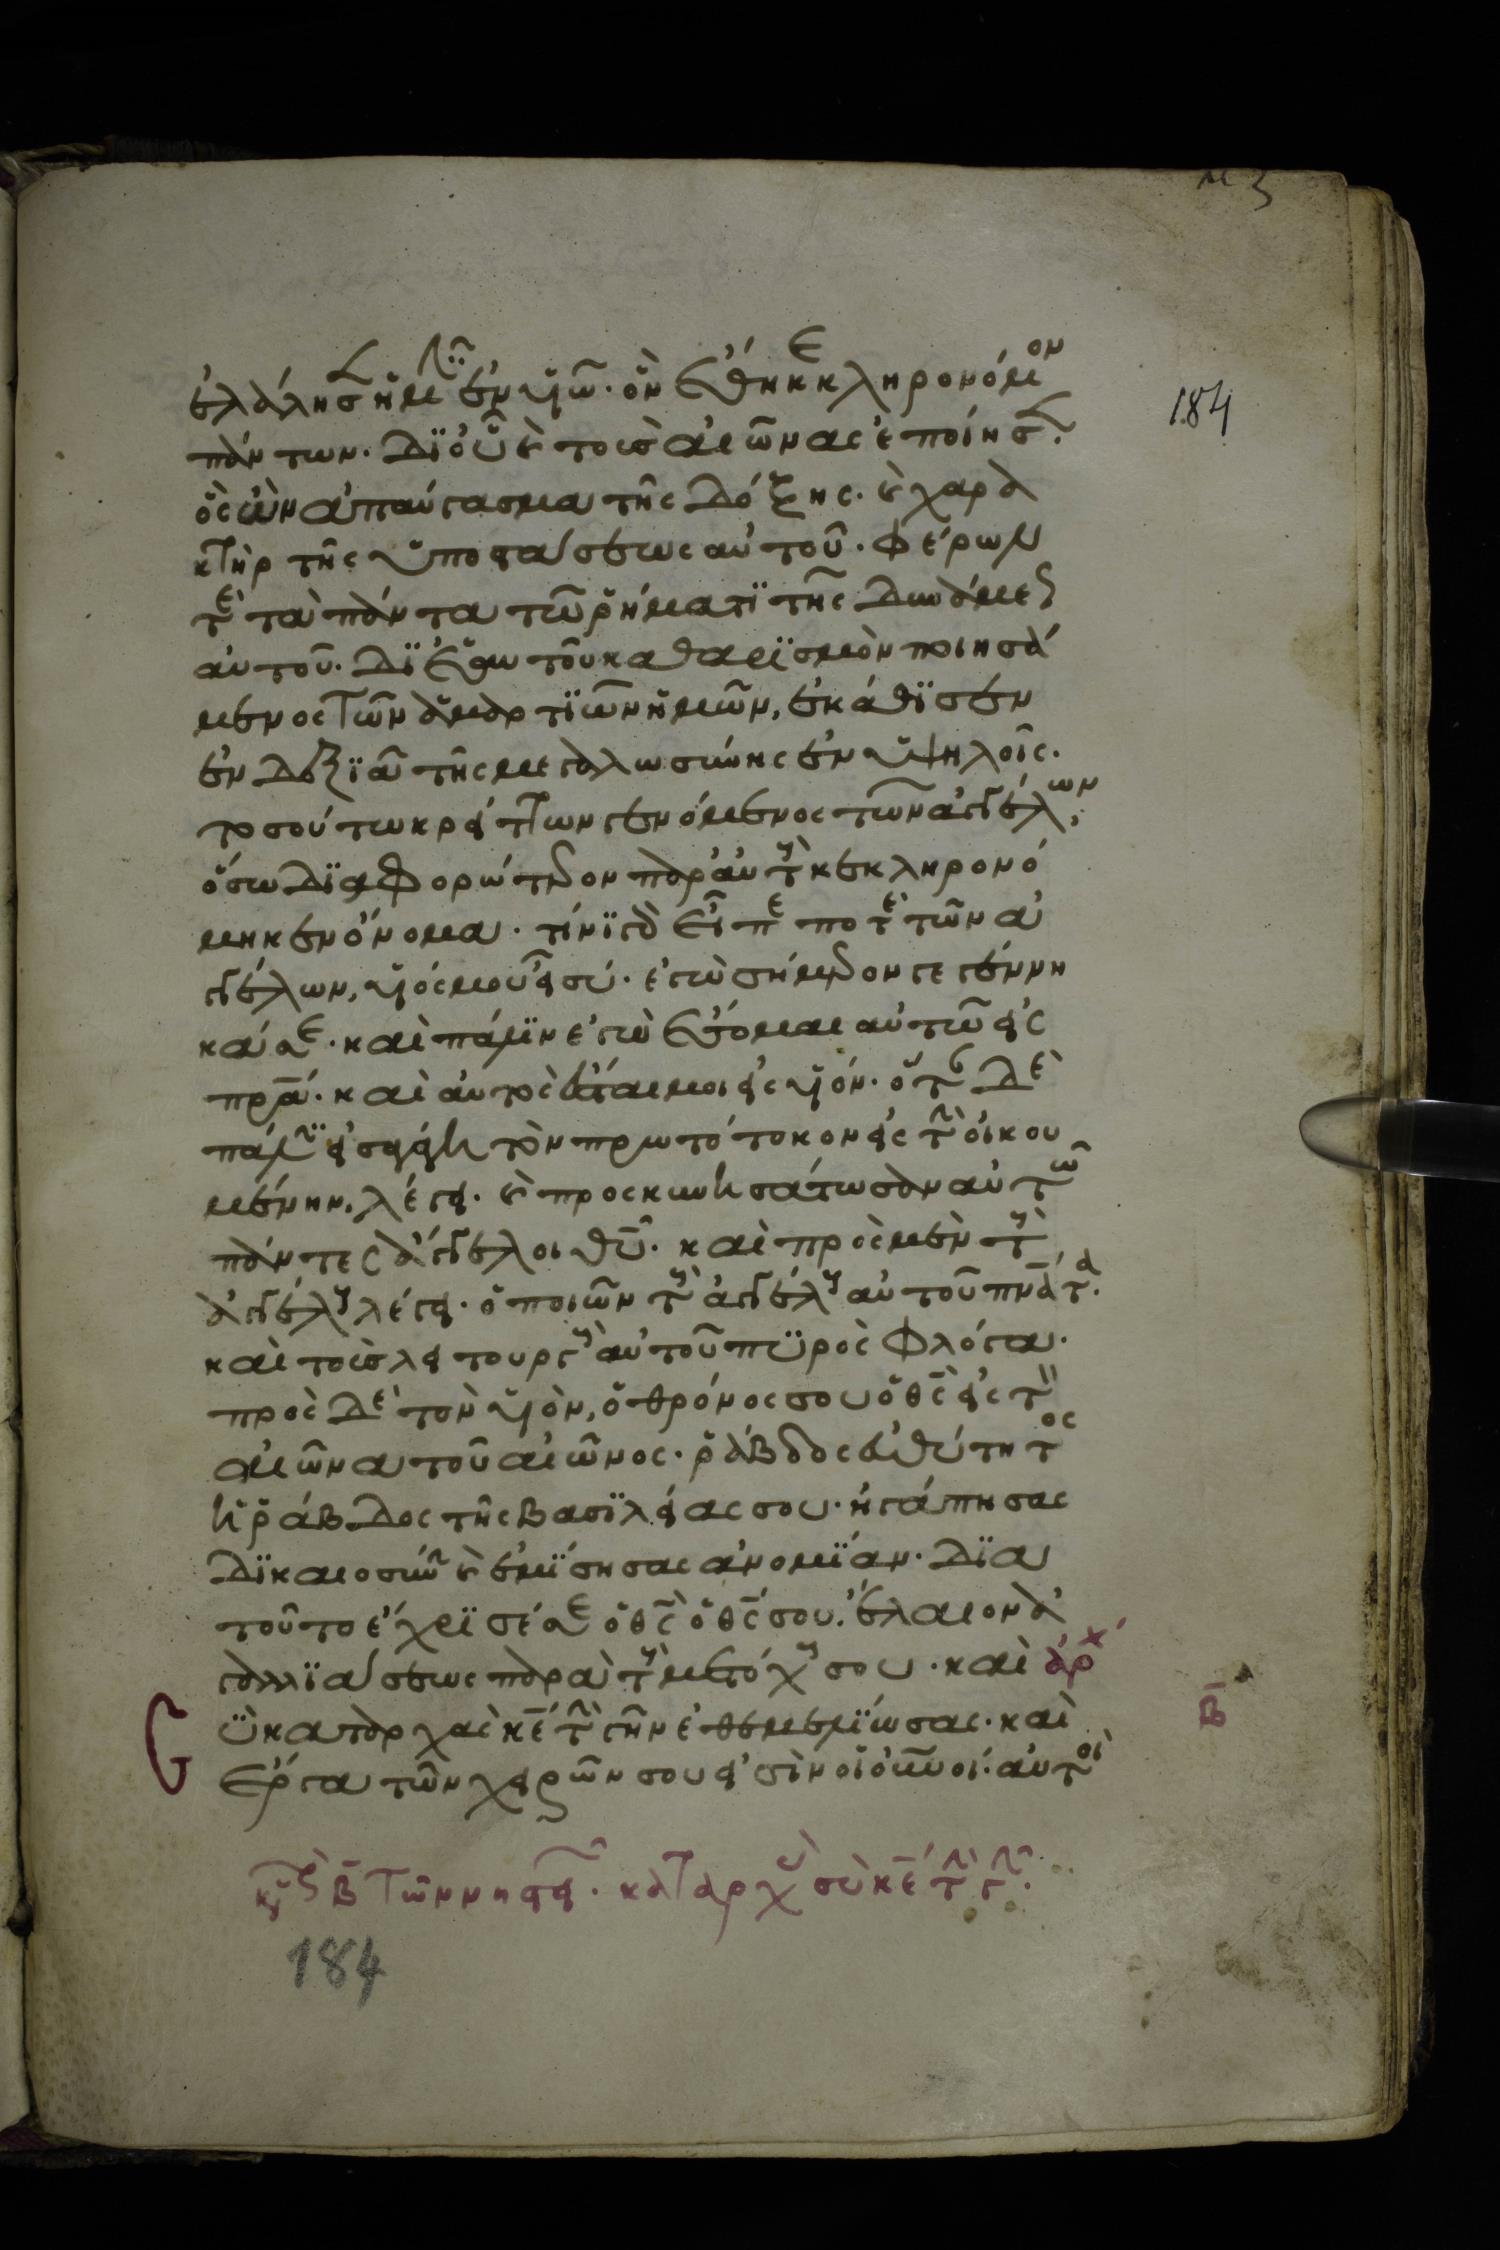 184
ἐλάλησεν ἡμῖν ἐν υἱῷ· ὃν ἔθηκε κληρονόμον
πάντων· δι' οὗ καὶ τοὺς αἰῶνας ἐποίησεν·
ὃς ὢν ἀπαύγασμα τῆς δόξης· καὶ χαρα
κτὴρ τῆς ὑποστάσεως αὐτοῦ· φέρων
τὲ τὰ πάντα τῷ ῥήματι τῆς δυνάμεως
αὐτοῦ· δι' ἑαυτοῦ καθαρισμὸν ποιησά
μενος τῶν ἁμαρτιῶν ἡμῶν, ἐκάθισεν
ἐν δεξιᾷ τῆς μεγαλωσύνης ἐν ὑψηλοῖς·
τοσούτω κρείττων γενόμενος τῶν ἀγγέλων,
ὅσω διαφορώτερον παρ' αὐτοὺς κεκληρονό
μηκεν ὄνομα· τίνι γὰρ εἶπε ποτὲ τῶν ἀ
γγέλων, υἱός μου εἶ σύ· ἐγὼ σήμερον γεγέννη
κά σε· καὶ πάλιν ἐγὼ ἔσομαι αὐτῷ εἰς
πρα· καὶ αὐτὸς ἔσται μοι εἰς υἱόν· ὅταν δὲ
πάλιν εἰσαγάγη τὸν πρωτότοκον εἰς τὴν οἰκου
μένην, λέγει· καὶ προσκυνησάτωσαν αὐτῷ
πάντες ἄγγελοι θυ· καὶ πρὸς μὲν τοὺς
ἀγγέλους λέγει· ὁ ποιῶν τοὺς ἀγγέλους αὐτοῦ πνατα·
καὶ τοὺς λειτουργοὺς αὐτοῦ πυρὸς φλόγα·
πρὸς δὲ τὸν υἱὸν, ὁ θρόνος σου ὁ θς εἰς τὸν
αἰῶνα τοῦ αἰῶνος· ῥάβδος εὐθύτητος
ἡ ῥάβδος τῆς βασιλείας σου· ἠγάπησας
δικαιοσύνην καὶ ἐμίσησας ἀνομίαν· διὰ
τοῦτο ἔχρισέ σε ὁ θς ὁ θς σου· ἔλαιον ἀ
γαλλιάσεως παρὰ τοὺς μετόχους σου· καὶ ἀρχ
σὺ κατ' ἀρχὰς κε τὴν γῆν ἐθεμελίωσας· καὶ
ἔργα τῶν χειρῶν σου εἰσὶν οἱ οὐνοι· αὐτοὶ
β
κυ β τῶν νηστει· κατ' ἀρχὰς σὺ κε τὴν γῆν·
184